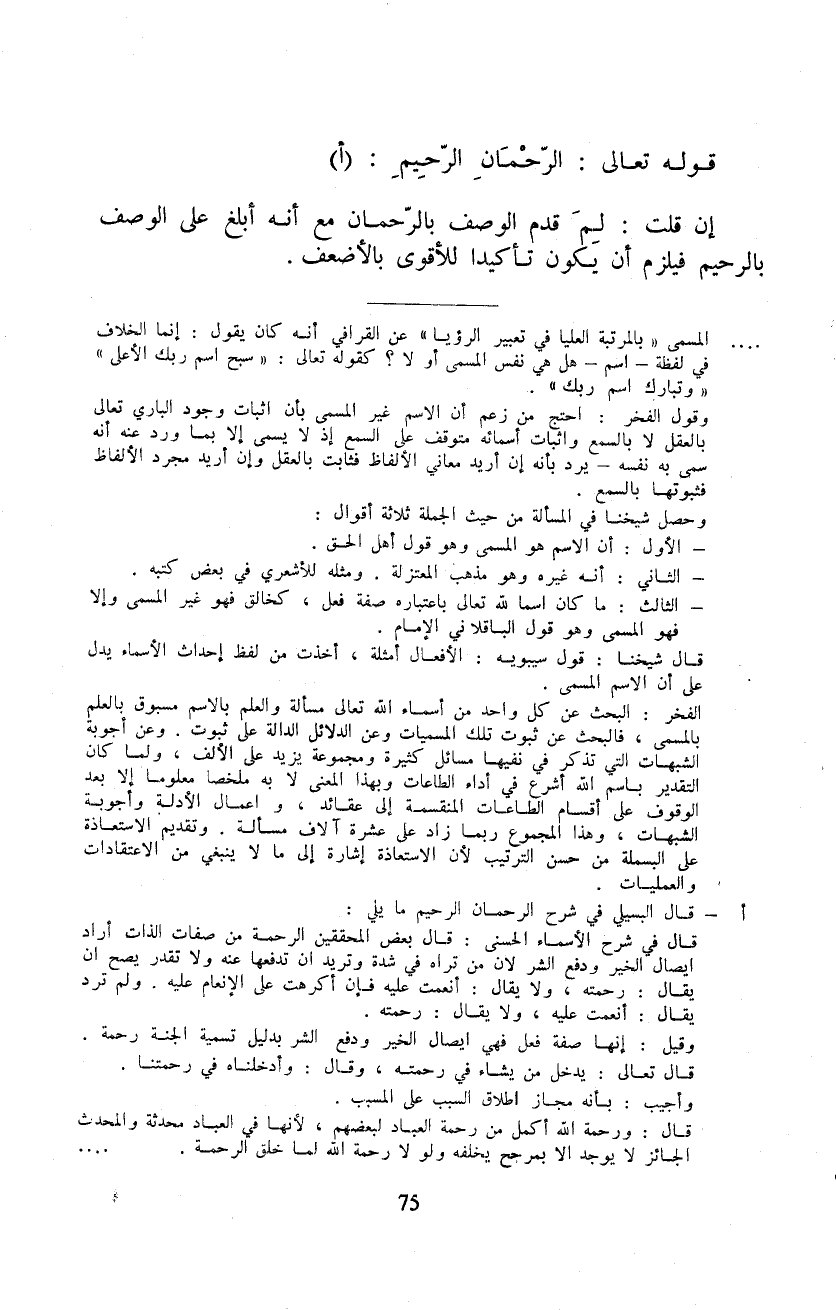 قوله تعالى : الرّحْمَانِ الرّحِيمِ : (أ)
إن قلت : لِمَ قدم الوصف بالرّحمان مع أنه أبلغ على الوصف
بالرحيم فيلزم أن يكون تأكيدا للأقوى بالأضعف .
.... المسمى « بالمرتبة العليا في تعبير الرؤيا» عن القرافي أنه كان يقول : إنما الخلاف
في لفظة – اسم – هل هي نفس المسمى أو لا ؟ كقوله تعالى : « سبح اسم ربك الأعلى »
« وتبارك اسم ربك» .
وقول الفخر : احتج من زعم أن الاسم غير المسمى بأن اثبات وجود الباري تعالى
بالعقل لا بالسمع واثبات أسمائه متوقف على السمع إذ لا يسمى إلا بما ورد عنه أنه
سمى به نفسه – يرد بأنه إن أريد معاني الألفاظ فثابت بالعقل وإن أريد مجرد الألفاظ
فثبوتها بالسمع .
وحصل شيخنا في المسألة من حيث الجملة ثلاثة أقوال :
– الأول : أن الاسم هو المسمى وهو قول أهل الحق .
– الثاني : أنه غيره وهو مذهب المعتزلة . ومثله للأشعري في بعض كتبه .
– الثالث : ما كان اسما لله تعالى باعتباره صفة فعل ، كخالق فهو غير المسمى وإلا
فهو المسمى وهو قول الباقلاني الإمام .
قال شيخنا : قول سيبويه : الأفعال أمثلة ، أخذت من لفظ إحداث الأسماء يدل
على أن الاسم المسمى .
الفخر : البحث عن كل واحد من أسماء الله تعالى مسألة والعلم بالاسم مسبوق بالعلم
بالمسمى ، فالبحث عن ثبوت تلك المسميات وعن الدلائل الدالة على ثبوت . وعن أجوبة
الشبهات التي تذكر في نفيها مسائل كثيرة ومجموعة يزيد على الألف ، ولما كان
التقدير باسم الله أشرع في أداء الطاعات وبهذا المعنى لا به ملخصا معلوما إلا بعد
الوقوف على أقسام الطاعات المنقسمة إلى عقائد ، و اعمال الأدلة وأجوبة
الشبهات ، وهذا المجموع ربما زاد على عشرة آلاف مسألة . وتقديم الاستعاذة
على البسملة من حسن الترتيب لأن الاستعاذة إشارة إلى ما لا ينبغي من الاعتقادات
والعمليات .
أ – قال البسيلي في شرح الرحمان الرحيم ما يلي :
قال في شرح الأسماء الحسنى : قال بعض المحققين الرحمة من صفات الذات أراد
ايصال الخير ودفع الشر لان من تراه في شدة وتريد ان تدفعها عنه ولا تقدر يصح ان
يقال : رحمته ، ولا يقال : أنعمت عليه فإن أكرهت على الإنعام عليه . ولم ترد
يقال : أنعمت عليه ، ولا يقال : رحمته .
وقيل : إنها صفة فعل فهي ايصال الخير ودفع الشر بدليل تسمية الجنة رحمة .
قال تعالى : يدخل من يشاء في رحمته ، وقال : وأدخلناه في رحمتنا .
وأجيب : بأنه مجاز اطلاق السبب على المسبب .
قال : ورحمة الله أكمل من رحمة العباد لبعضهم ، لأنها في العباد محدثة والمحدث
الجائز لا يوجد الا بمرجح يخلفه ولو لا رحمة الله لما خلق الرحمة . ....
75